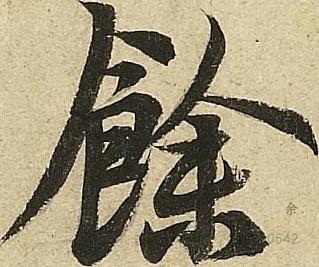 餘
余
0542